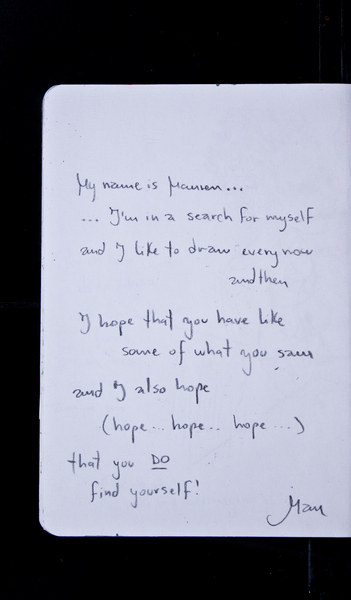 My name is Mauren...
... I'm in a search for myself
and I like to draw every now
and then
I hope that you have like
some of what you saw
and I also hope
(hope... hope.. hope...)
that you DO
find yourself!
Mau